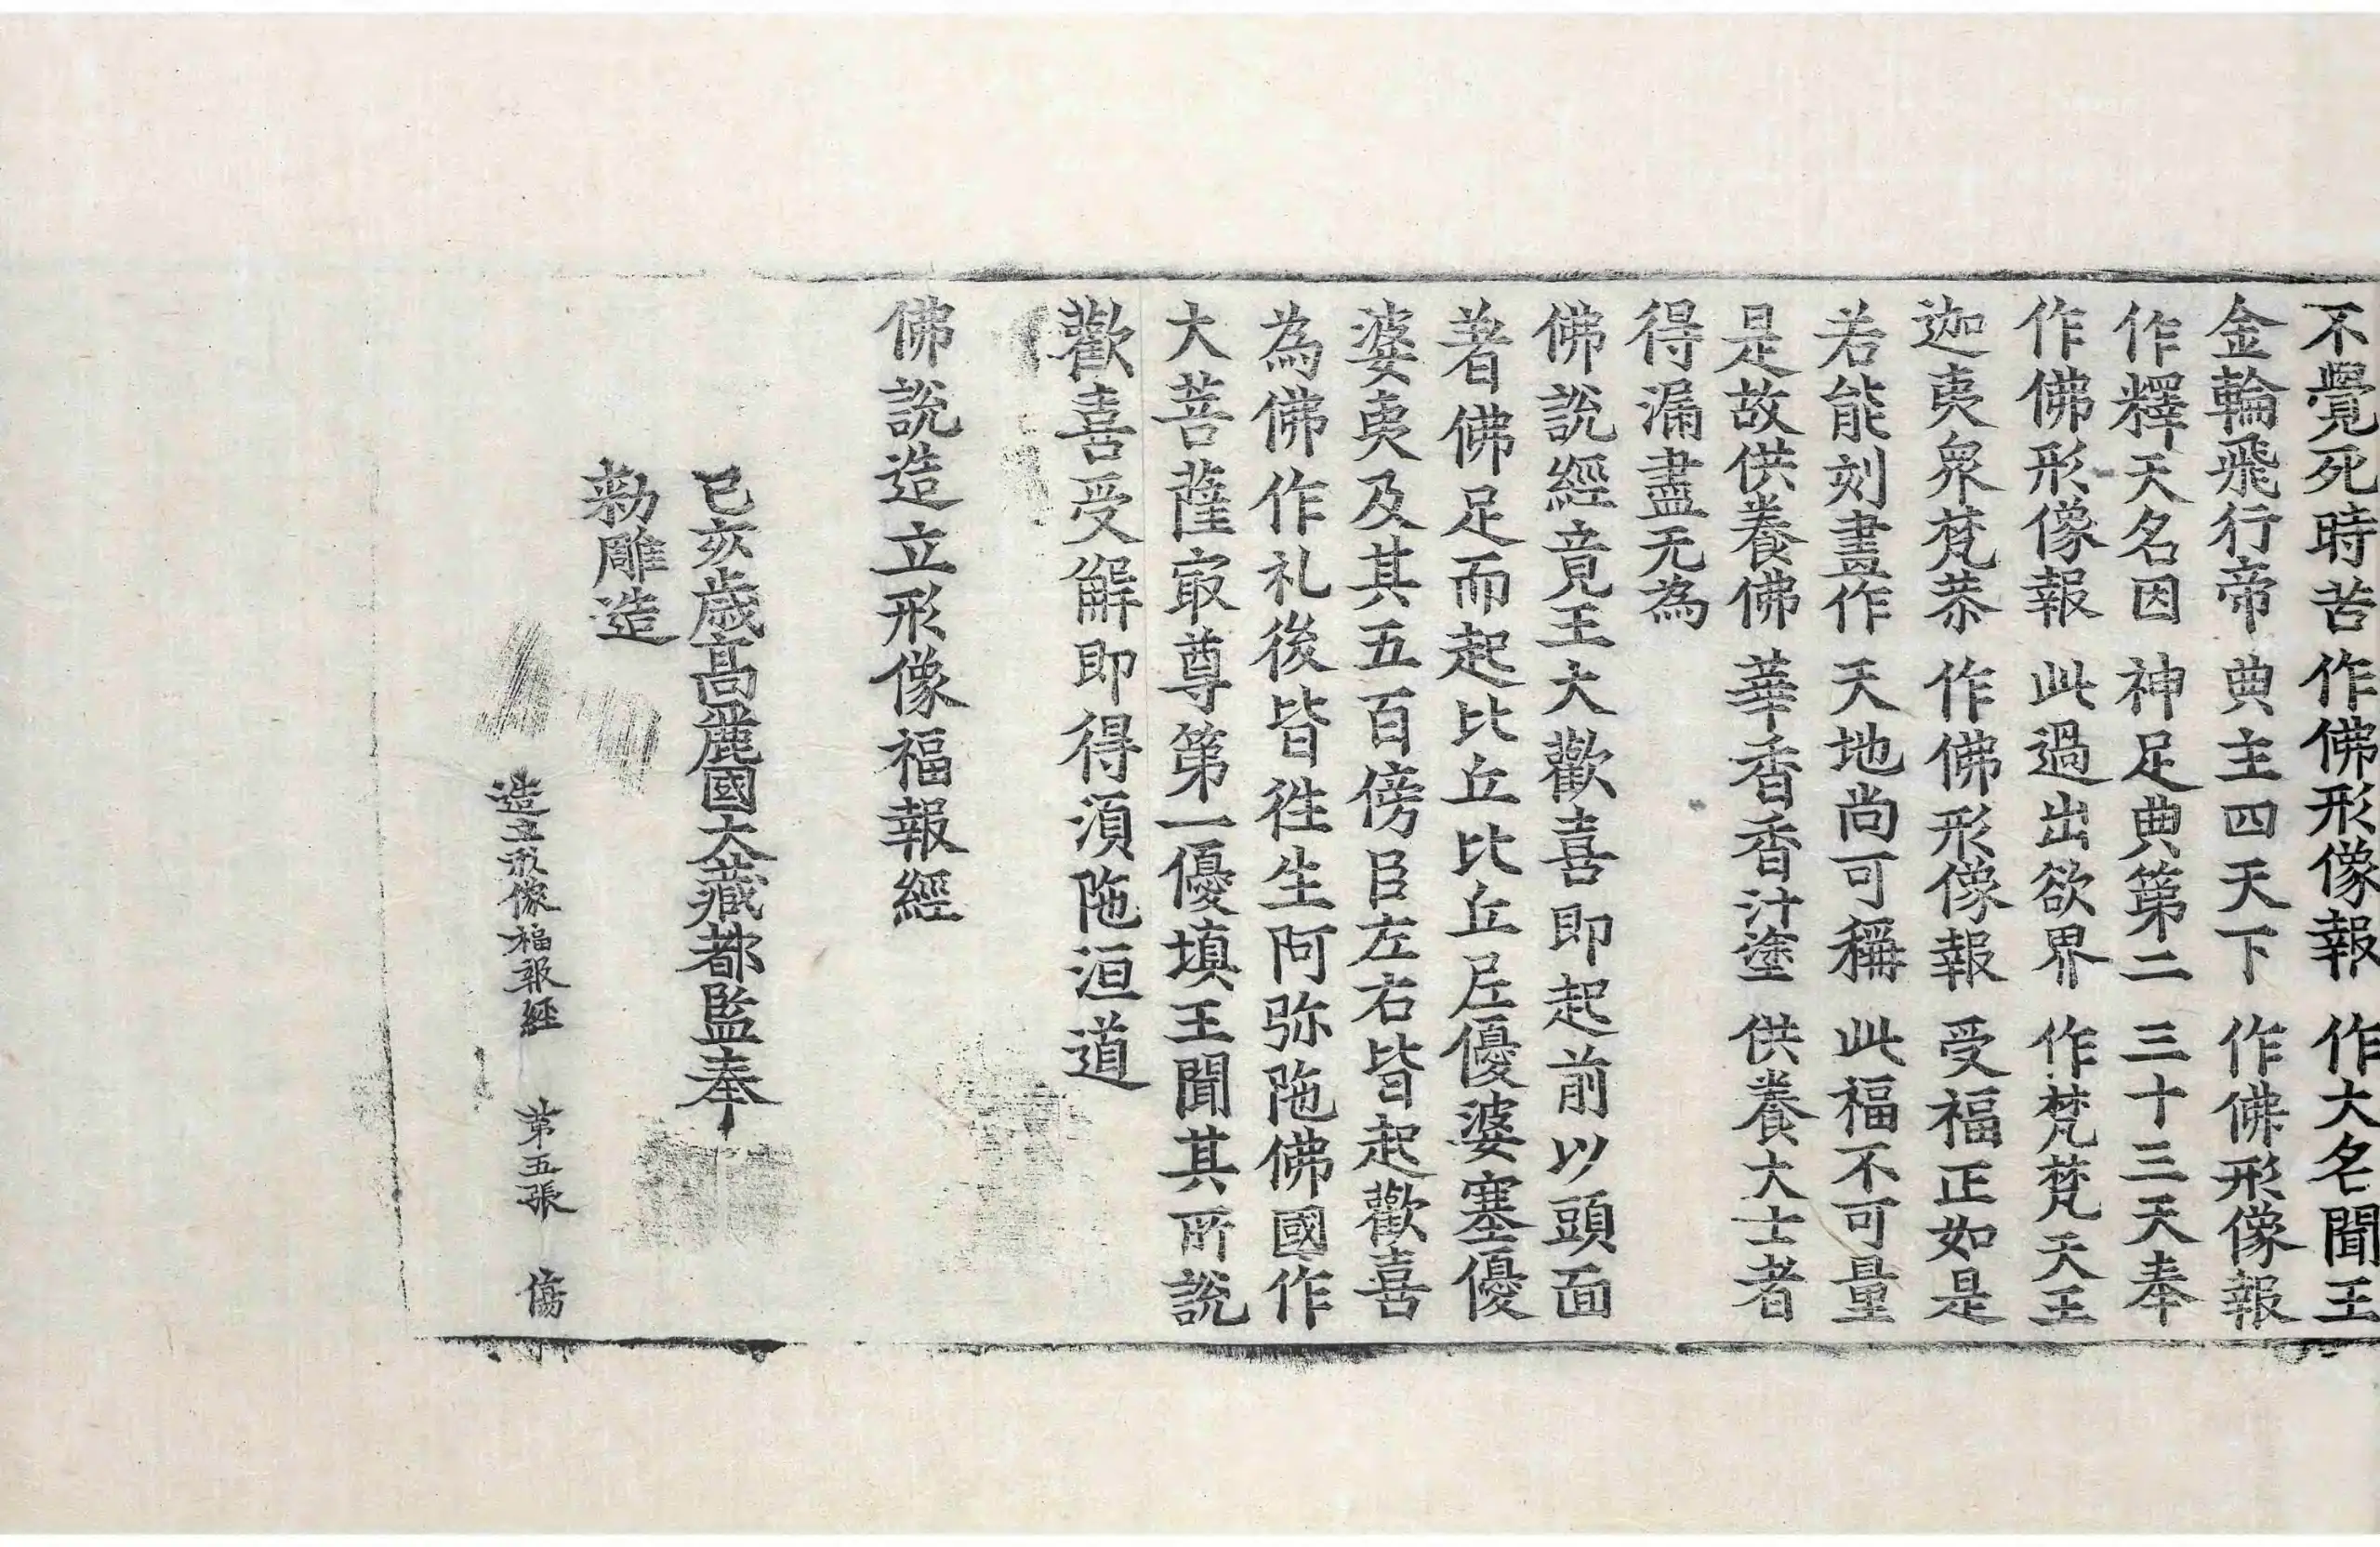 不覺死時苦 作佛形像報 作大名聞王
金輪飛行帝 典主四天下 作佛形像報
作釋天名因 神足典第二 三十三天奉
作佛形像報 此過出欲界 作梵梵天王
迦夷衆梵恭 作佛形像報 受福正如是
若能刻畫作 天地尚可稱 此福不可量
是故供養佛 華香香汁塗 供養大士者
得漏盡无為
佛說經竟王大歡喜即起前以頭面
著佛足而起比丘比丘尼優婆塞優
婆夷及其五百傍臣左右皆起歡喜
為佛作礼後皆往生阿弥陁佛國作
大菩薩㝡尊第一優填王聞其所說
歡喜受解即得湏陁洹道
佛說造立形像福報經
己亥歲高麗國大藏都監奉
勅雕造
造立形像福報經 第五張